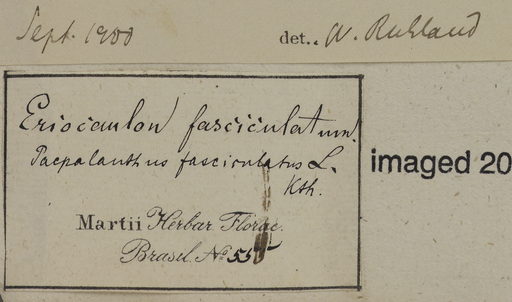 Sept. 1900 det. W. Ruhland
Eriocaulon fasciculatum.
Paepalanthus fasciculatus L.
Kth.
imaged 20
Martii Herbar. Florae
Brasil. No. 55